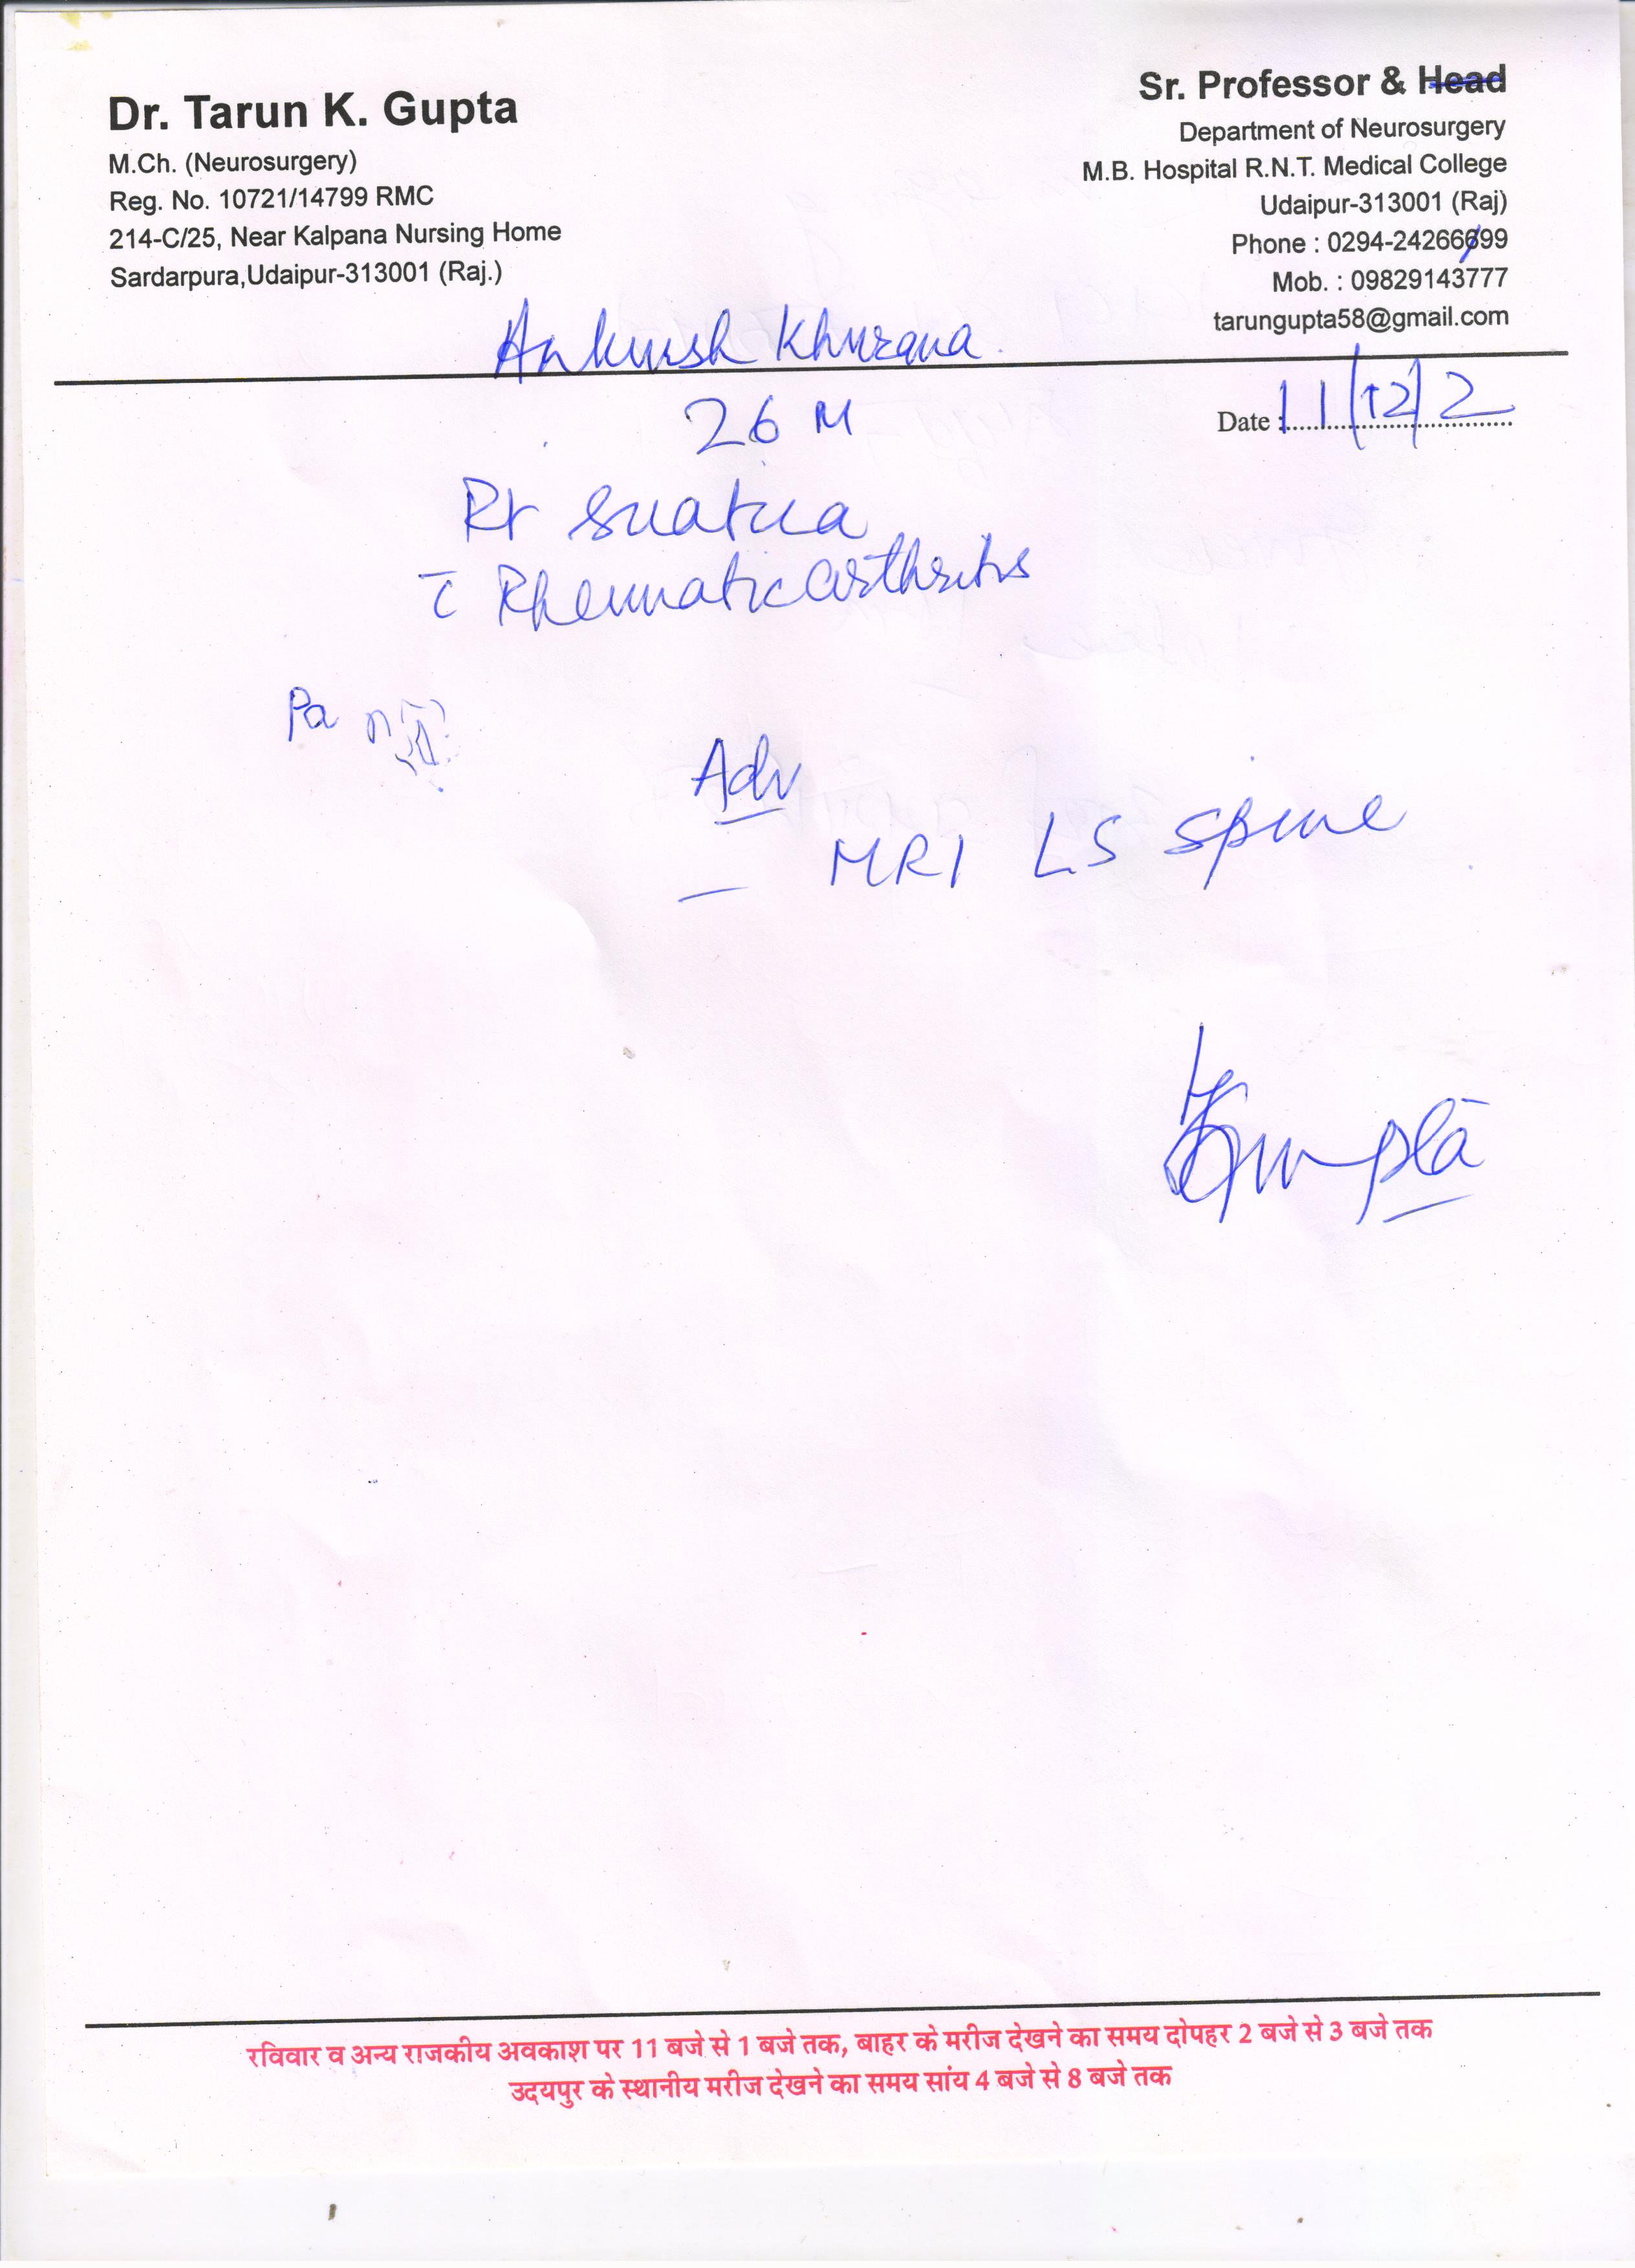 Dr. Tarun K. Gupta
M.Ch. (Neurosurgery)
Reg. No. 10721/14799 RMC
214-C/25, Near Kalpana Nursing Home
Sardarpura,Udaipur-313001 (Raj.)
Sr. Professor & Head
Department of Neurosurgery
M.B. Hospital R.N.T. Medical College
Udaipur-313001 (Raj)
Phone : 0294-24266699
Mob. : 09829143777
tarungupta58@gmail.com
Ankush Khurana
Date : 11/12/2
26 M
Rt Sciatica
c̄ Rheumatic arthritis
Pa
Adv
– MRI LS Spine
Gupta
रविवार व अन्य राजकीय अवकाश पर 11 बजे से 1 बजे तक, बाहर के मरीज देखने का समय दोपहर 2 बजे से 3 बजे तक
उदयपुर के स्थानीय मरीज देखने का समय सांय 4 बजे से 8 बजे तक